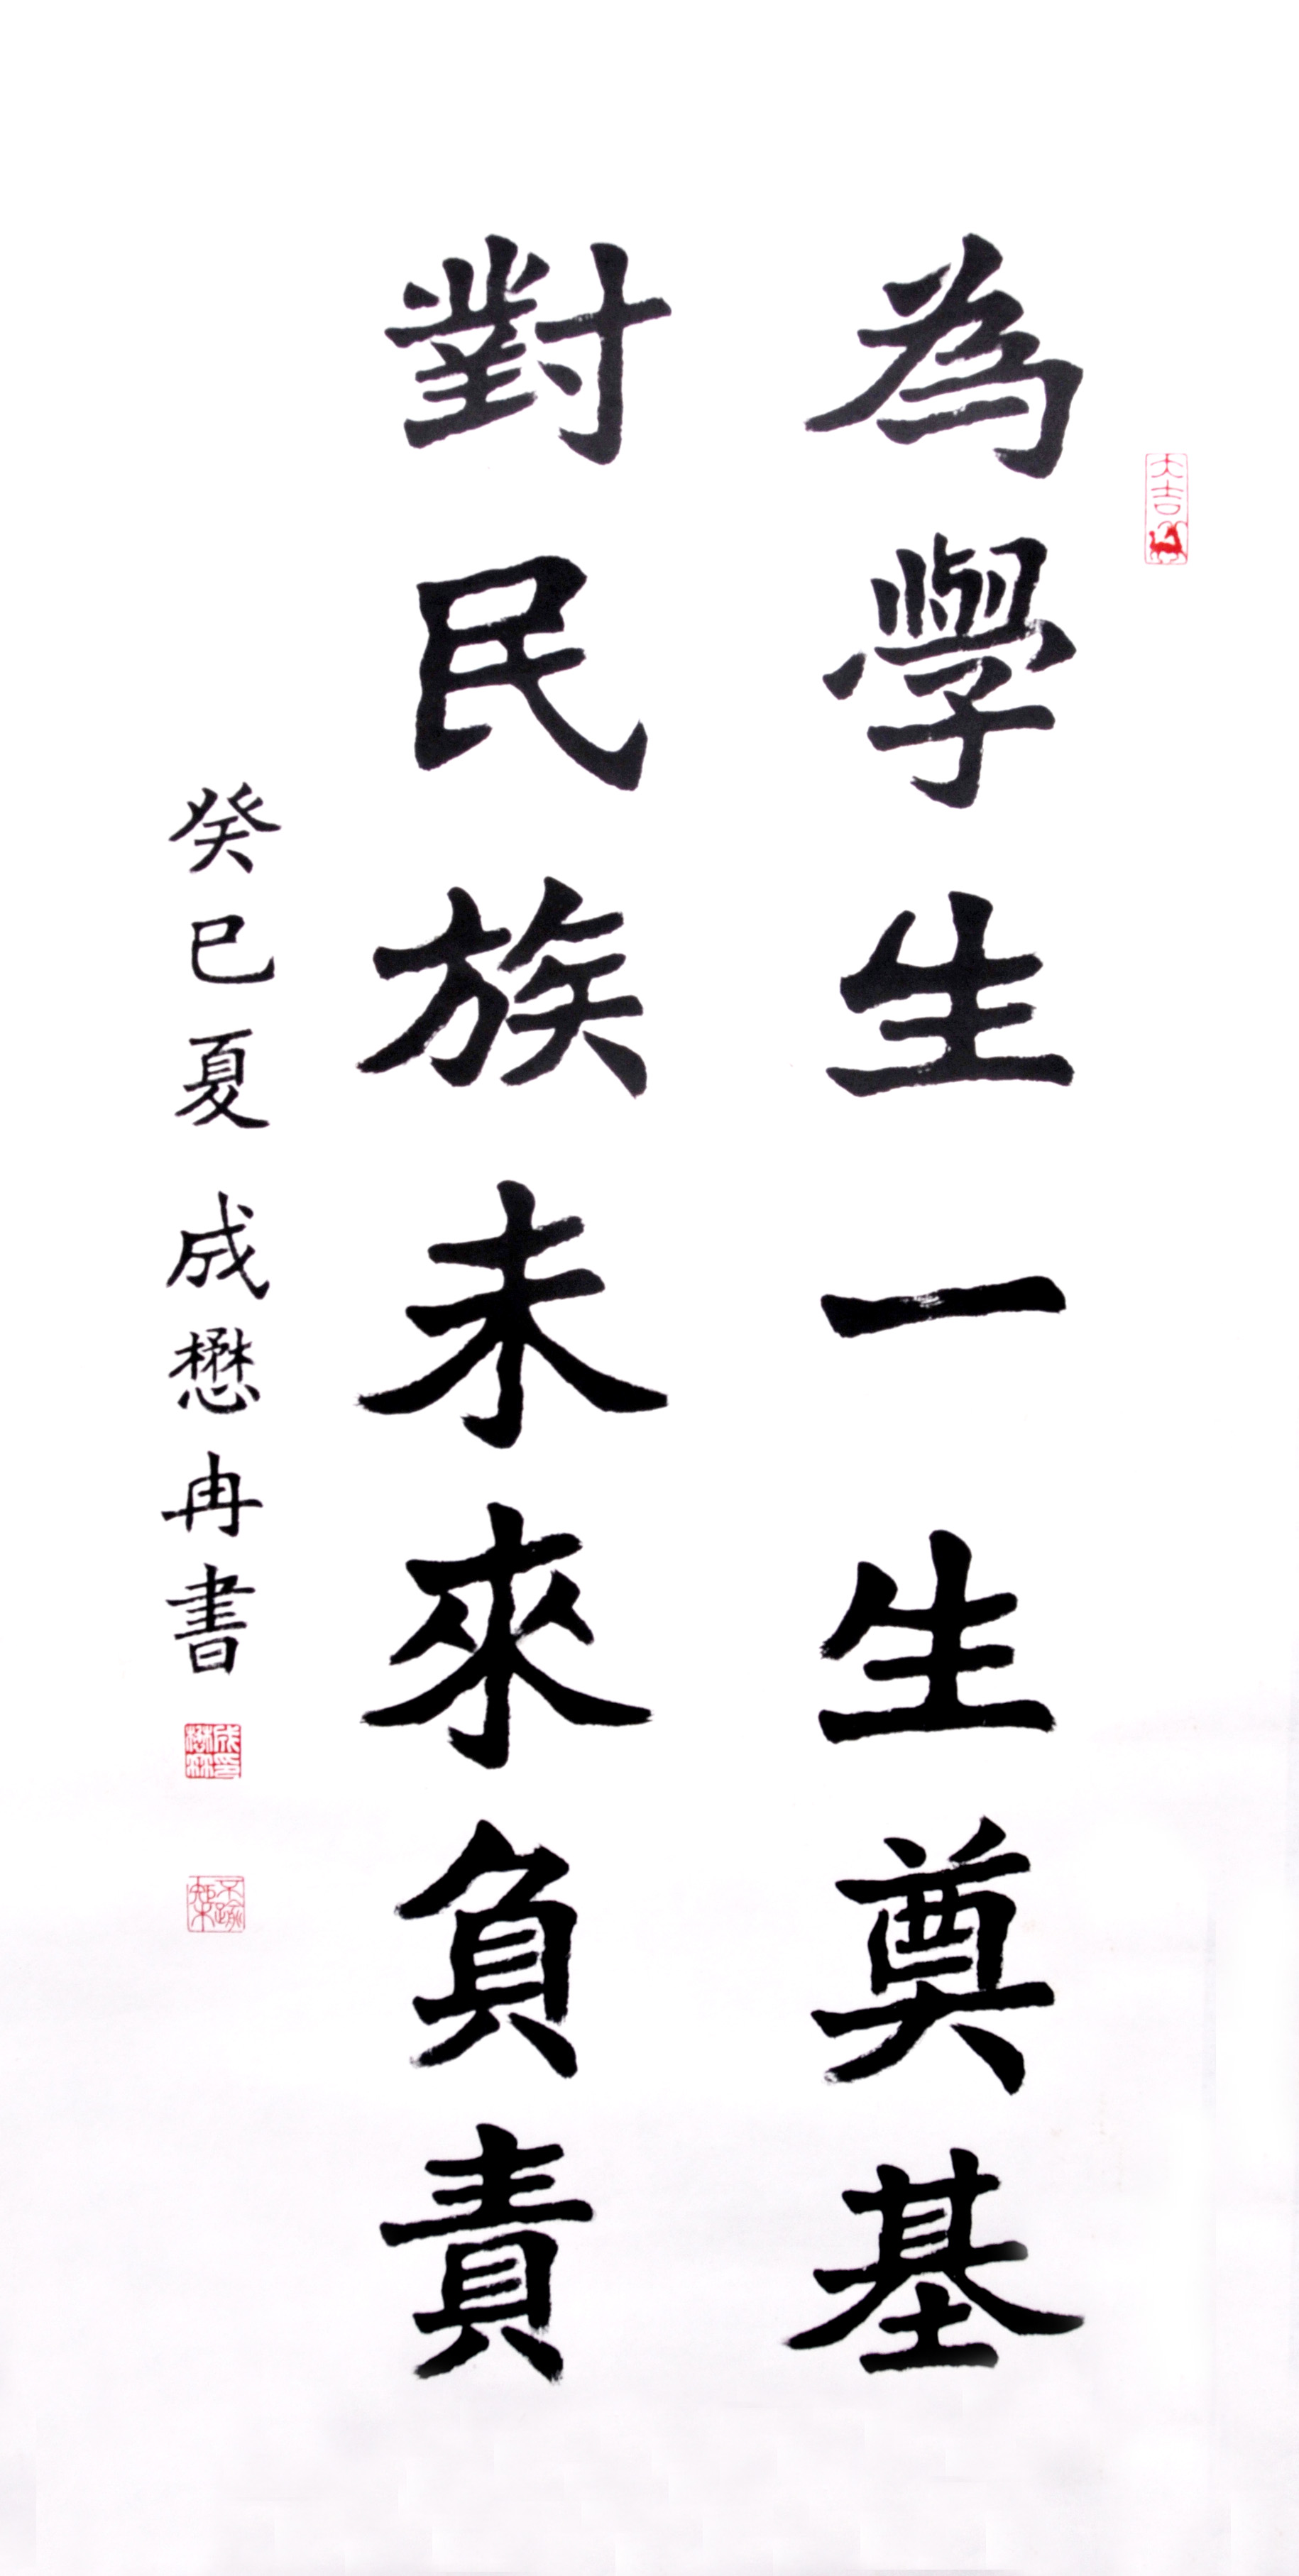 為學生一生奠基
對民族未來負責
癸巳夏 成懋冉書
大吉
不踰矩